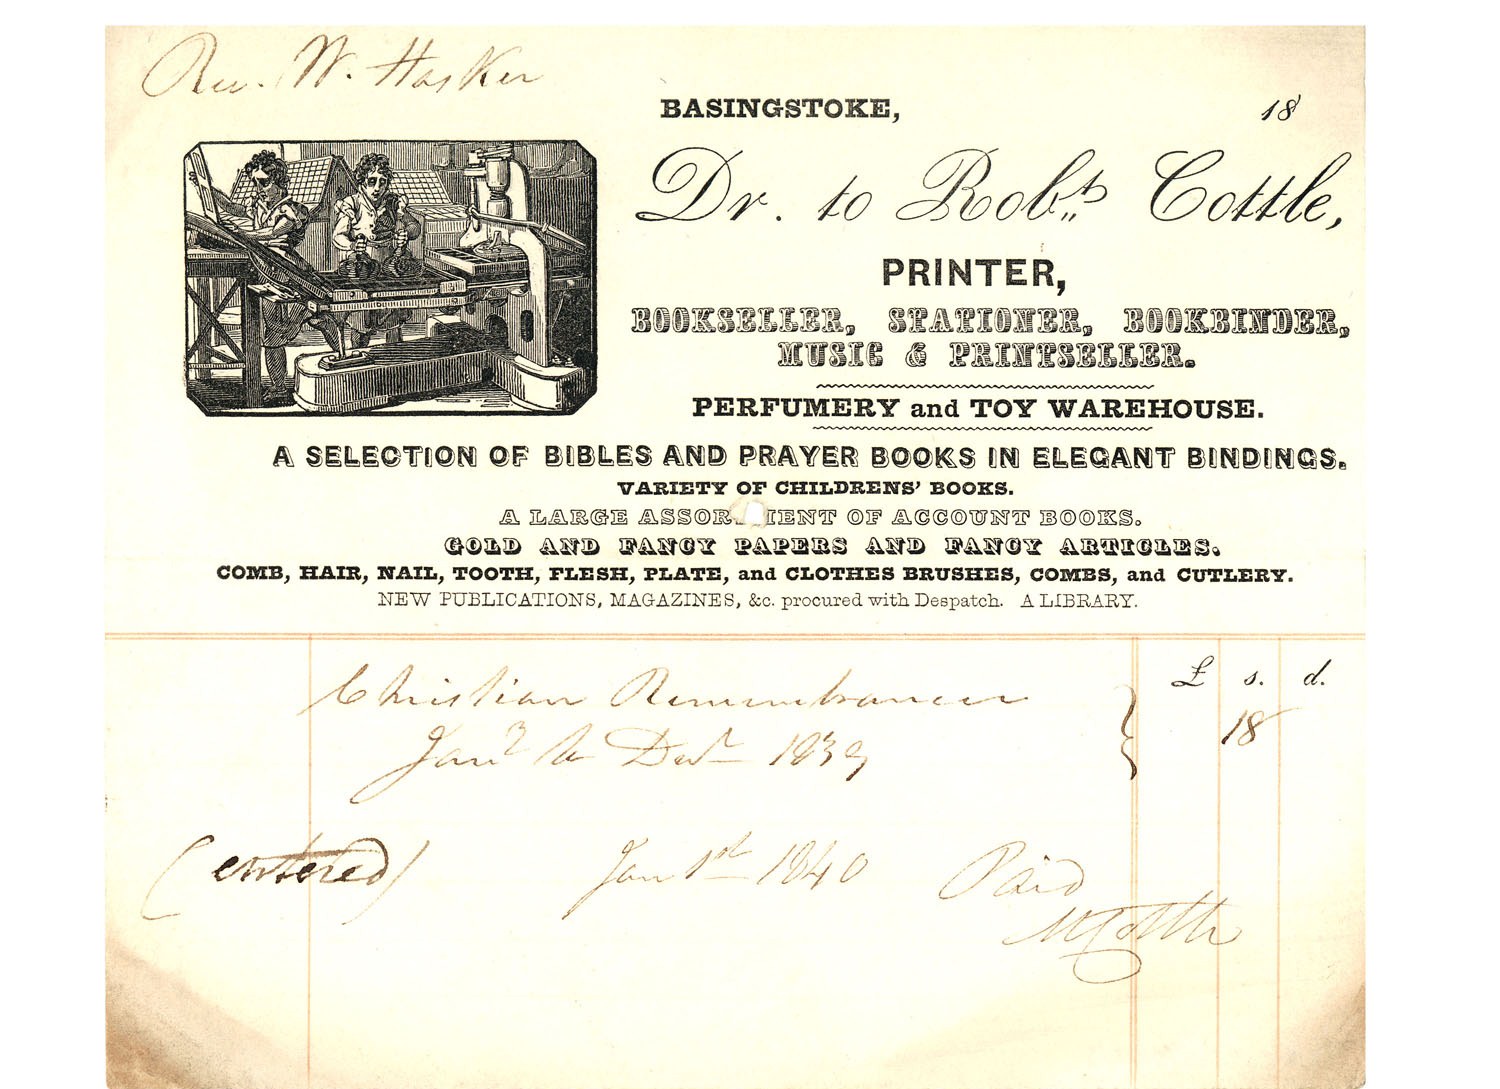 Rev. W. Hasker
BASINGSTOKE, 18
Dr. to Robts Cottle,
PRINTER,
BOOKSELLER, STATIONER, BOOKBINDER,
MUSIC & PRINTSELLER.
PERFUMERY and TOY WAREHOUSE.
A SELECTION OF BIBLES AND PRAYER BOOKS IN ELEGANT BINDINGS.
VARIETY OF CHILDRENS' BOOKS.
A LARGE ASSOR MENT OF ACCOUNT BOOKS.
GOLD AND FANCY PAPERS AND FANCY ARTICLES.
COMB, HAIR, NAIL, TOOTH, FLESH, PLATE, and CLOTHES BRUSHES, COMBS, and CUTLERY.
NEW PUBLICATIONS, MAGAZINES, &c. procured with Despatch. A LIBRARY.
£ s. d.
Christian Remembrancer
Jany to Decr 1839 18
(entered) Jan 1st 1840 Paid
Cottle